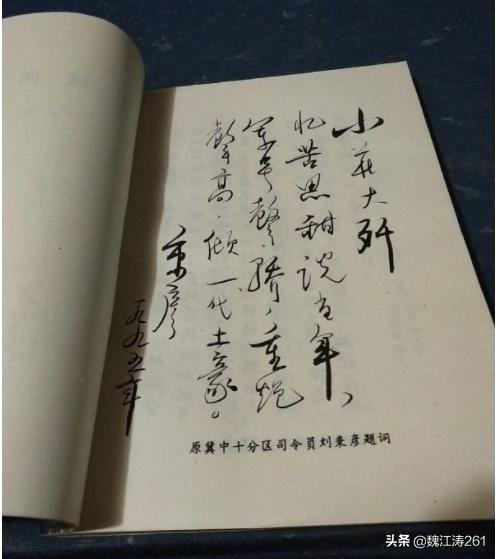 小荘大歼
忆苦思甜说当年、
军号聲骄,重炮
聲高,倾一代土豪。
秉彦
一九九五年
原冀中十分区司令员刘秉彦题词
头条 @魏江涛261